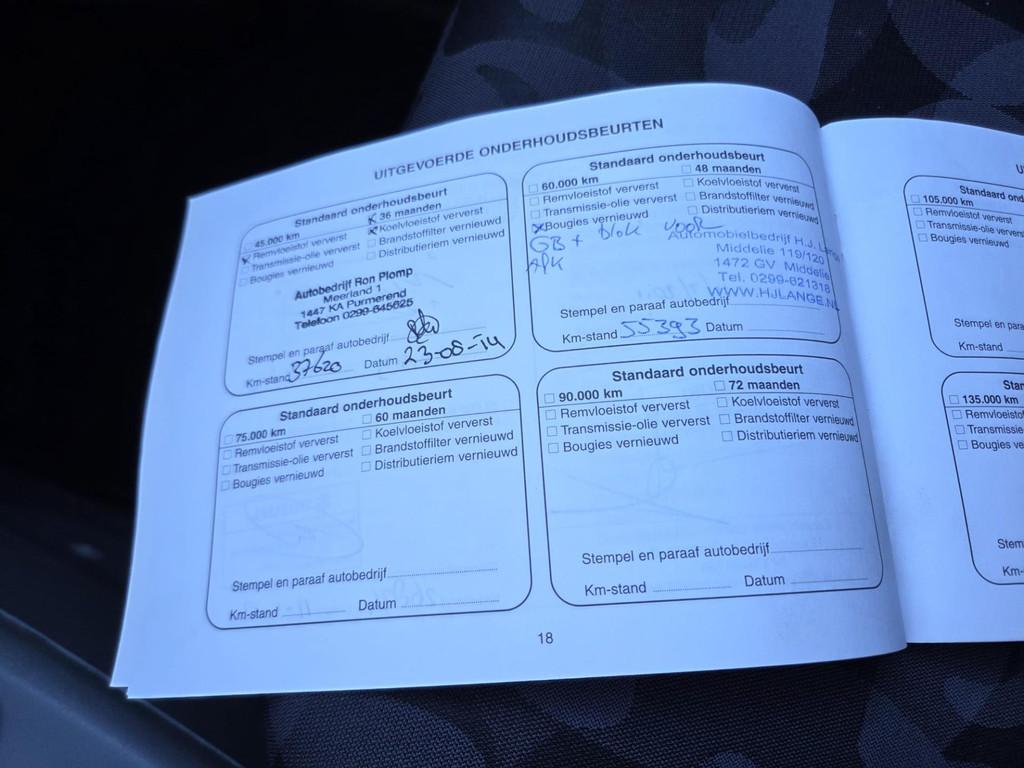 UITGEVOERDE ONDERHOUDSBEURTEN
Standaard onderhoudsbeurt
45.000 km 36 maanden
Remvloeistof ververst Koelvloeistof ververst
Transmissie-olie ververst Brandstoffilter vernieuwd
Bougies vernieuwd Distributieriem vernieuwd
Autobedrijf Ron Plomp
Meerland 1
1447 KA Purmerend
Telefoon 0299-645625
Stempel en paraaf autobedrijf
Km-stand 37620 Datum 23-08-14
Standaard onderhoudsbeurt
60.000 km 48 maanden
Remvloeistof ververst Koelvloeistof ververst
Transmissie-olie ververst Brandstoffilter vernieuwd
Bougies vernieuwd Distributieriem vernieuwd
GB + blok voor
APK
Automobielbedrijf H.J.
Middelie 119/120
1472 GV Middelie
Tel. 0299-621318
WWW.HJLANGE.NL
Stempel en paraaf autobedrijf
Km-stand 55393 Datum
Standaard onderhoudsbeurt
75.000 km 60 maanden
Remvloeistof ververst Koelvloeistof ververst
Transmissie-olie ververst Brandstoffilter vernieuwd
Bougies vernieuwd Distributieriem vernieuwd
Stempel en paraaf autobedrijf
Km-stand Datum
Standaard onderhoudsbeurt
90.000 km 72 maanden
Remvloeistof ververst Koelvloeistof ververst
Transmissie-olie ververst Brandstoffilter vernieuwd
Bougies vernieuwd Distributieriem vernieuwd
Stempel en paraaf autobedrijf
Km-stand Datum
18
U
Standaard ond
105.000 km
Remvloeistof ververst
Transmissie-olie ververst
Bougies vernieuwd
Stempel en para
Km-stand
Star
135.000 km
Remvloeisto
Transmissie
Bougies ve
Stem
Km-